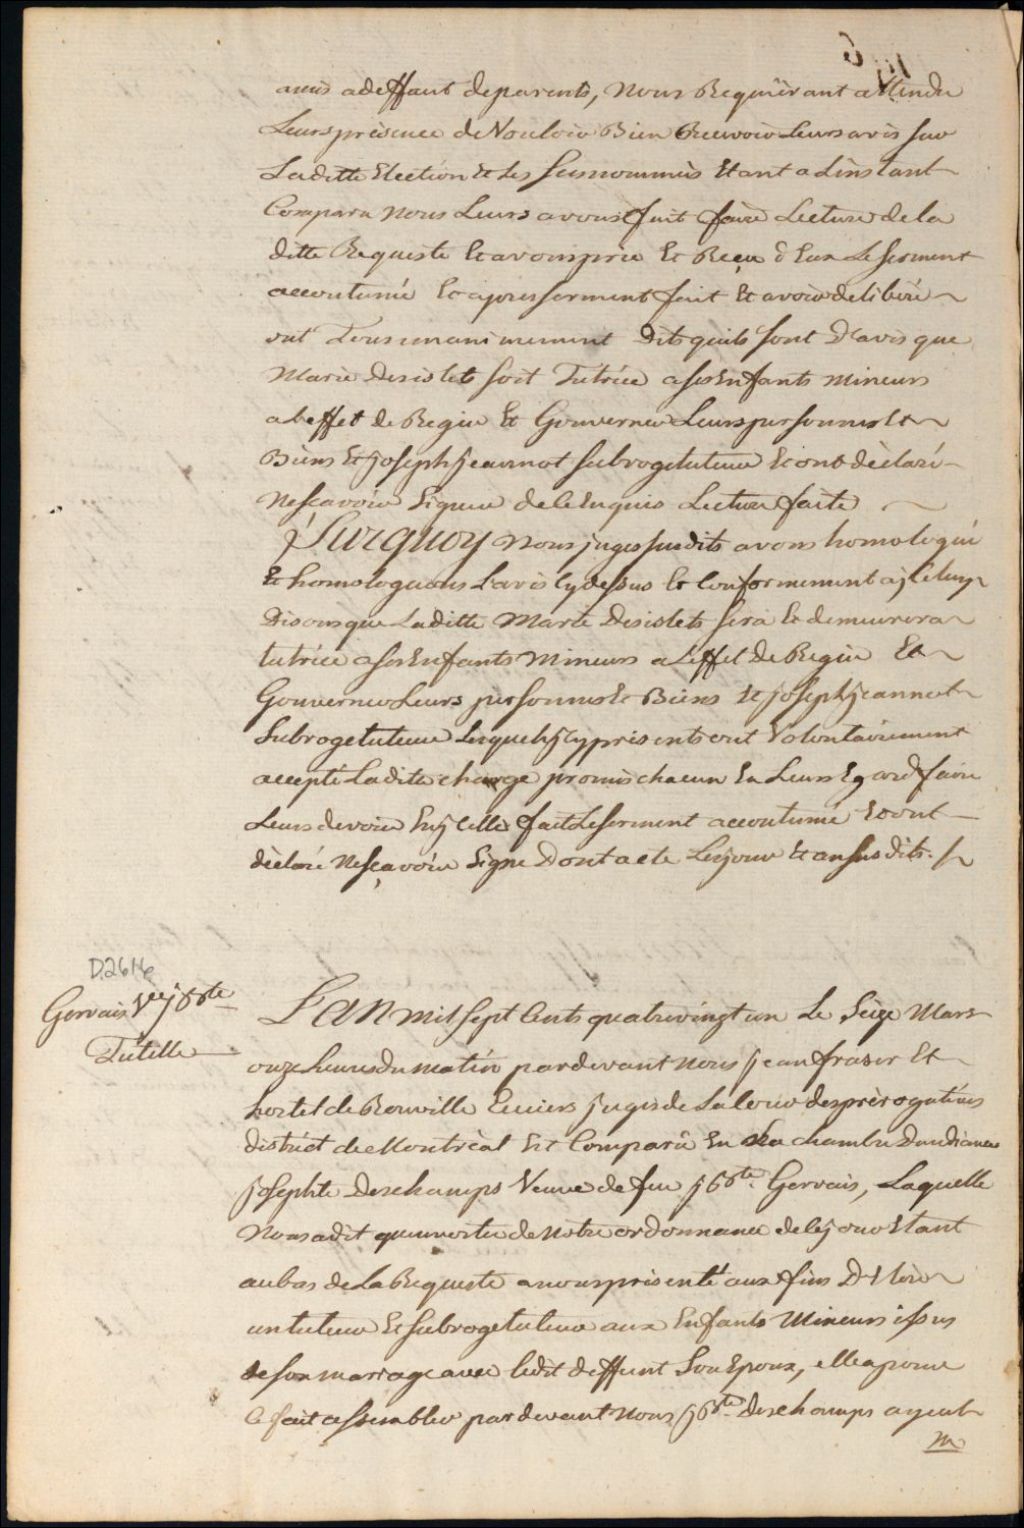 amis a deffaut de parents, Nous Requèrant attendu
Leurs prèsence de Vouloir Bien Recevoir Leurs avis sur
Laditte Election Et Les susnommès Etant a Linstant
Comparu nous Leurs avons fait faire Lecture de la
ditte Requeste Et avons pris Et Reçu d'Eux Le serment
accoutumé Et apres serment fait Et avoir deliberé
ont Tous unanimement dits quils sont D'avis que
Marie desislets soit Tutrice a ses Enfants mineurs
a Leffet de Regir Et Gouverner Leurs personnes Et
Biens Et joseph jeannot subrogetuteur Et ont dèclaré
Ne sçavoir Signer de ce Enquis Lecture faite
Surquoy Nous juges susdits avons homologué
Et homologuons Lavis Cydessus Et Conformement a jceluy
Disons que Laditte Marie desislets sera Et demeurera
tutrice a ses Enfants Mineurs a Leffet de Regir Et
Gouverner Leurs personnes Et Biens Et joseph jeannot
Subrogetuteur Lesquels jcy prèsents ont Volontairement
accepté Ladite charge promis chacun En Leurs Egard faire
Leurs devoir En jcelle fait Le serment accoutumé Et ont
dèclaré Ne sçavoir Signe Dont acte Les jour Et an susdits.
D.2614e
Gervais Vve jBte
Tutelle
L'an mil sept Cents quatrevingt un Le Seize Mars
onze heures du matin pardevant nous jean fraser Et
hertel de Rouville Ecuiers juges de La Cour des prèrogatives
district de Montrèal Est Comparû En La chambre Daudiance
josephte Deschamps Veuve de feu jBte. Gervais, Laquelle
Nous a dit quen vertu de Notre ordonnance de ce jour Etant
au bas de La Requeste a nous prèsenté aux fins D'Elire
un tuteur Et subrogetuteur aux Enfants Mineurs issus
de son marriage avec ledit deffunt Son Epoux, elle a pour
ce fait assembler pardevant Nous jBte. deschamps ayeul
m